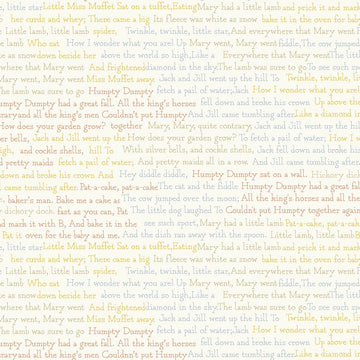 little star Little Miss Muffet Sat on a tuffet, Eating Mary had a little lamb and prick it and mark
her curds and whey; There came a big Its fleece was white as snow bake it in the oven for baby
Little lamb, little lamb spider, Twinkle, twinkle, little star, And everywhere that Mary went
lamb Who sat How I wonder what you are! Up Mary went, Mary went fiddle, The cow jumped
as snow down beside her above the world so high, Like a Everywhere that Mary went The little
where that Mary went And frightened diamond in the sky. The lamb was sure to go To see such
Mary went, Mary went Miss Muffet away. Jack and Jill went up the hill To Twinkle, twinkle,
The lamb was sure to go Humpty Dumpty fetch a pail of water; Jack How I wonder what you are!
Humpty Dumpty had a great fall. All the king's horses fell down and broke his crown Up above the
and all the king's men Couldn't put Humpty And Jill came tumbling after. Like a diamond in
How does your garden grow? together Mary, Mary, quite contrary, Jack and Jill went up the hill
bells, Jack and Jill went up the How does your garden grow? To fetch a pail of water; How I
and cockle shells, hill To With silver bells, and cockle shells, Jack fell down and broke his
pretty maids fetch a pail of water; And pretty maids all in a row. And Jill came tumbling after
down and broke his crown And Hey diddle diddle, Humpty Dumpty sat on a wall. Hickory
came tumbling after. Pat-a-cake, pat-a-cake The cat and the fiddle Humpty Dumpty had a great
baker's man. Bake me a cake as The cow jumped over the moon; All the king's horses and all the
dickory dock. fast as you can, Pat The little dog laughed To Couldn't put Humpty together again
mark it with B, And bake it in the see such sport, Mary had a little lamb Pat-a-cake, pat-a-cake
Pat it oven for the baby and me. And the dish ran away with the spoon. Little lamb, little lamb
little star Little Miss Muffet Sat on a tuffet, Eating Mary had a little lamb and prick it and mark
her curds and whey; There came a big Its fleece was white as snow bake it in the oven for baby
Little lamb, little lamb spider, Twinkle, twinkle, little star, And everywhere that Mary went
lamb Who sat How I wonder what you are! Up Mary went, Mary went fiddle, The cow jumped
as snow down beside her above the world so high, Like a Everywhere that Mary went The little
where that Mary went And frightened diamond in the sky. The lamb was sure to go To see such
Mary went, Mary went Miss Muffet away. Jack and Jill went up the hill To Twinkle, twinkle,
The lamb was sure to go Humpty Dumpty fetch a pail of water; Jack How I wonder what you are!
Humpty Dumpty had a great fall. All the king's horses fell down and broke his crown Up above the
and all the king's men Couldn't put Humpty And Jill came tumbling after. Like a diamond in